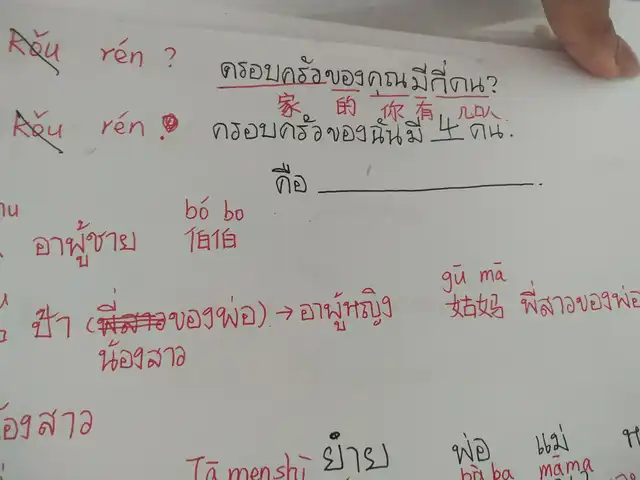 Kǒu rén ? ครอบครัวของคุณมีกี่คน?
家 的 你 有 几口人
Kǒu rén ? ครอบครัวของฉันมี 4 คน.
คือ
bó bo
อาผู้ชาย 伯伯
gū mā
ป้า (พี่สาวของพ่อ) → อาผู้หญิง 姑妈 พี่สาวของพ่อ
น้องสาว
น้องสาว
Tā men shì ย่า ยาย พ่อ แม่
bà ba māma